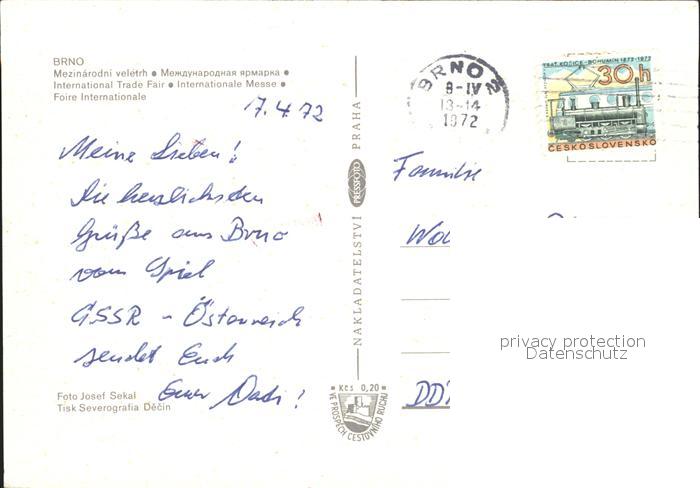 BRNO
Mezinárodní veletrh ● Международная ярмарка ●
International Trade Fair ● Internationale Messe ●
Foire Internationale
17.4.72
Meine Lieben!
Die herzlichsten
Grüße aus Brno
vom Spiel
ČSSR - Österreich
sendet Euch
Euer Dadi!
Foto Josef Sekal
Tisk Severografia Děčín
NAKLADATELSTVÍ PRESSFOTO PRAHA
Kčs 0,20
VE PROSPĚCH CESTOVNÍHO RUCHU
BRNO 2
8-IV
13-14
1972
TRAŤ KOŠICE - BOHUMÍN 1872-1972
30 h
ČESKOSLOVENSKO
Familie
privacy protection
Datenschutz